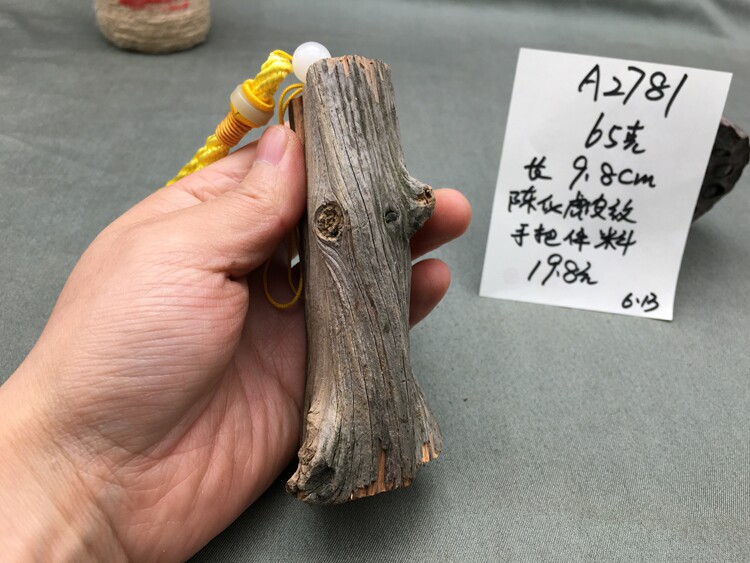 A2781
65克
长 9.8cm
陈化虎皮纹
手把件料
19.8元
6.13